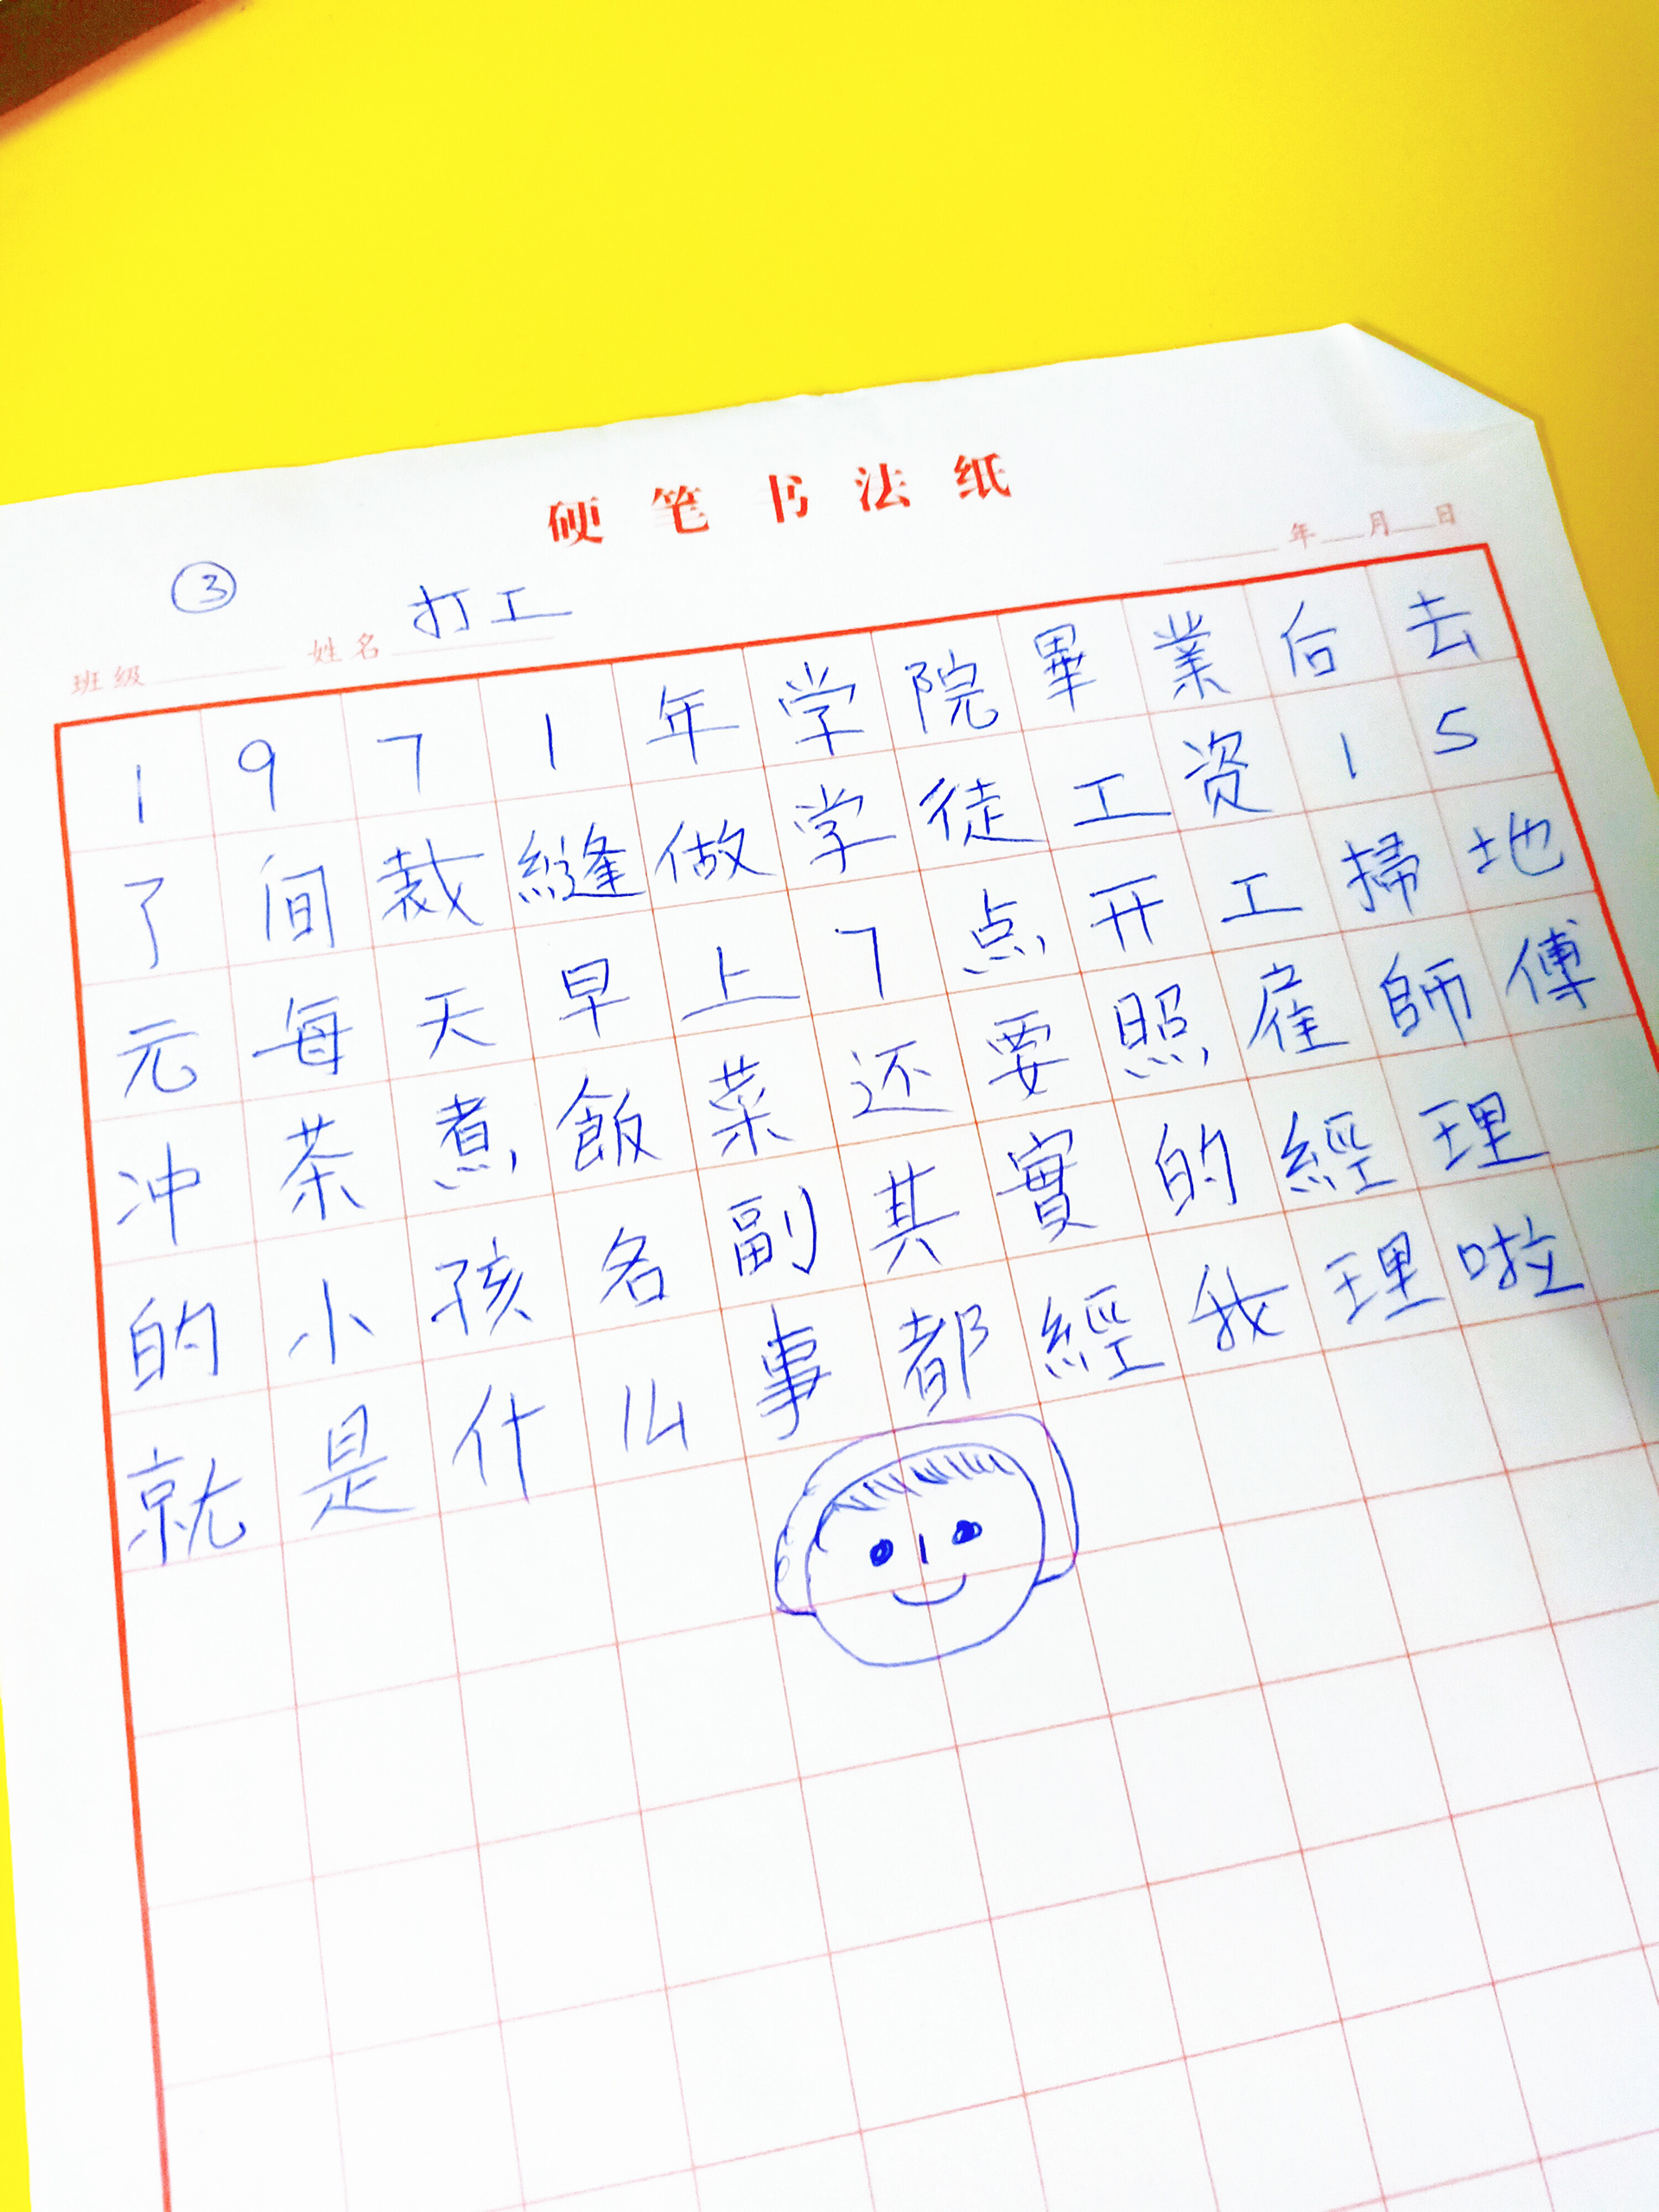 硬笔书法纸
年 月 日
③
班级 姓名 打工
1971年学院畢業后去
了间裁縫做学徒工资15
元每天早上7点开工掃地
冲茶煮飯菜还要照雇師傅
的小孩名副其實的經理
就是什么事都經我理啦